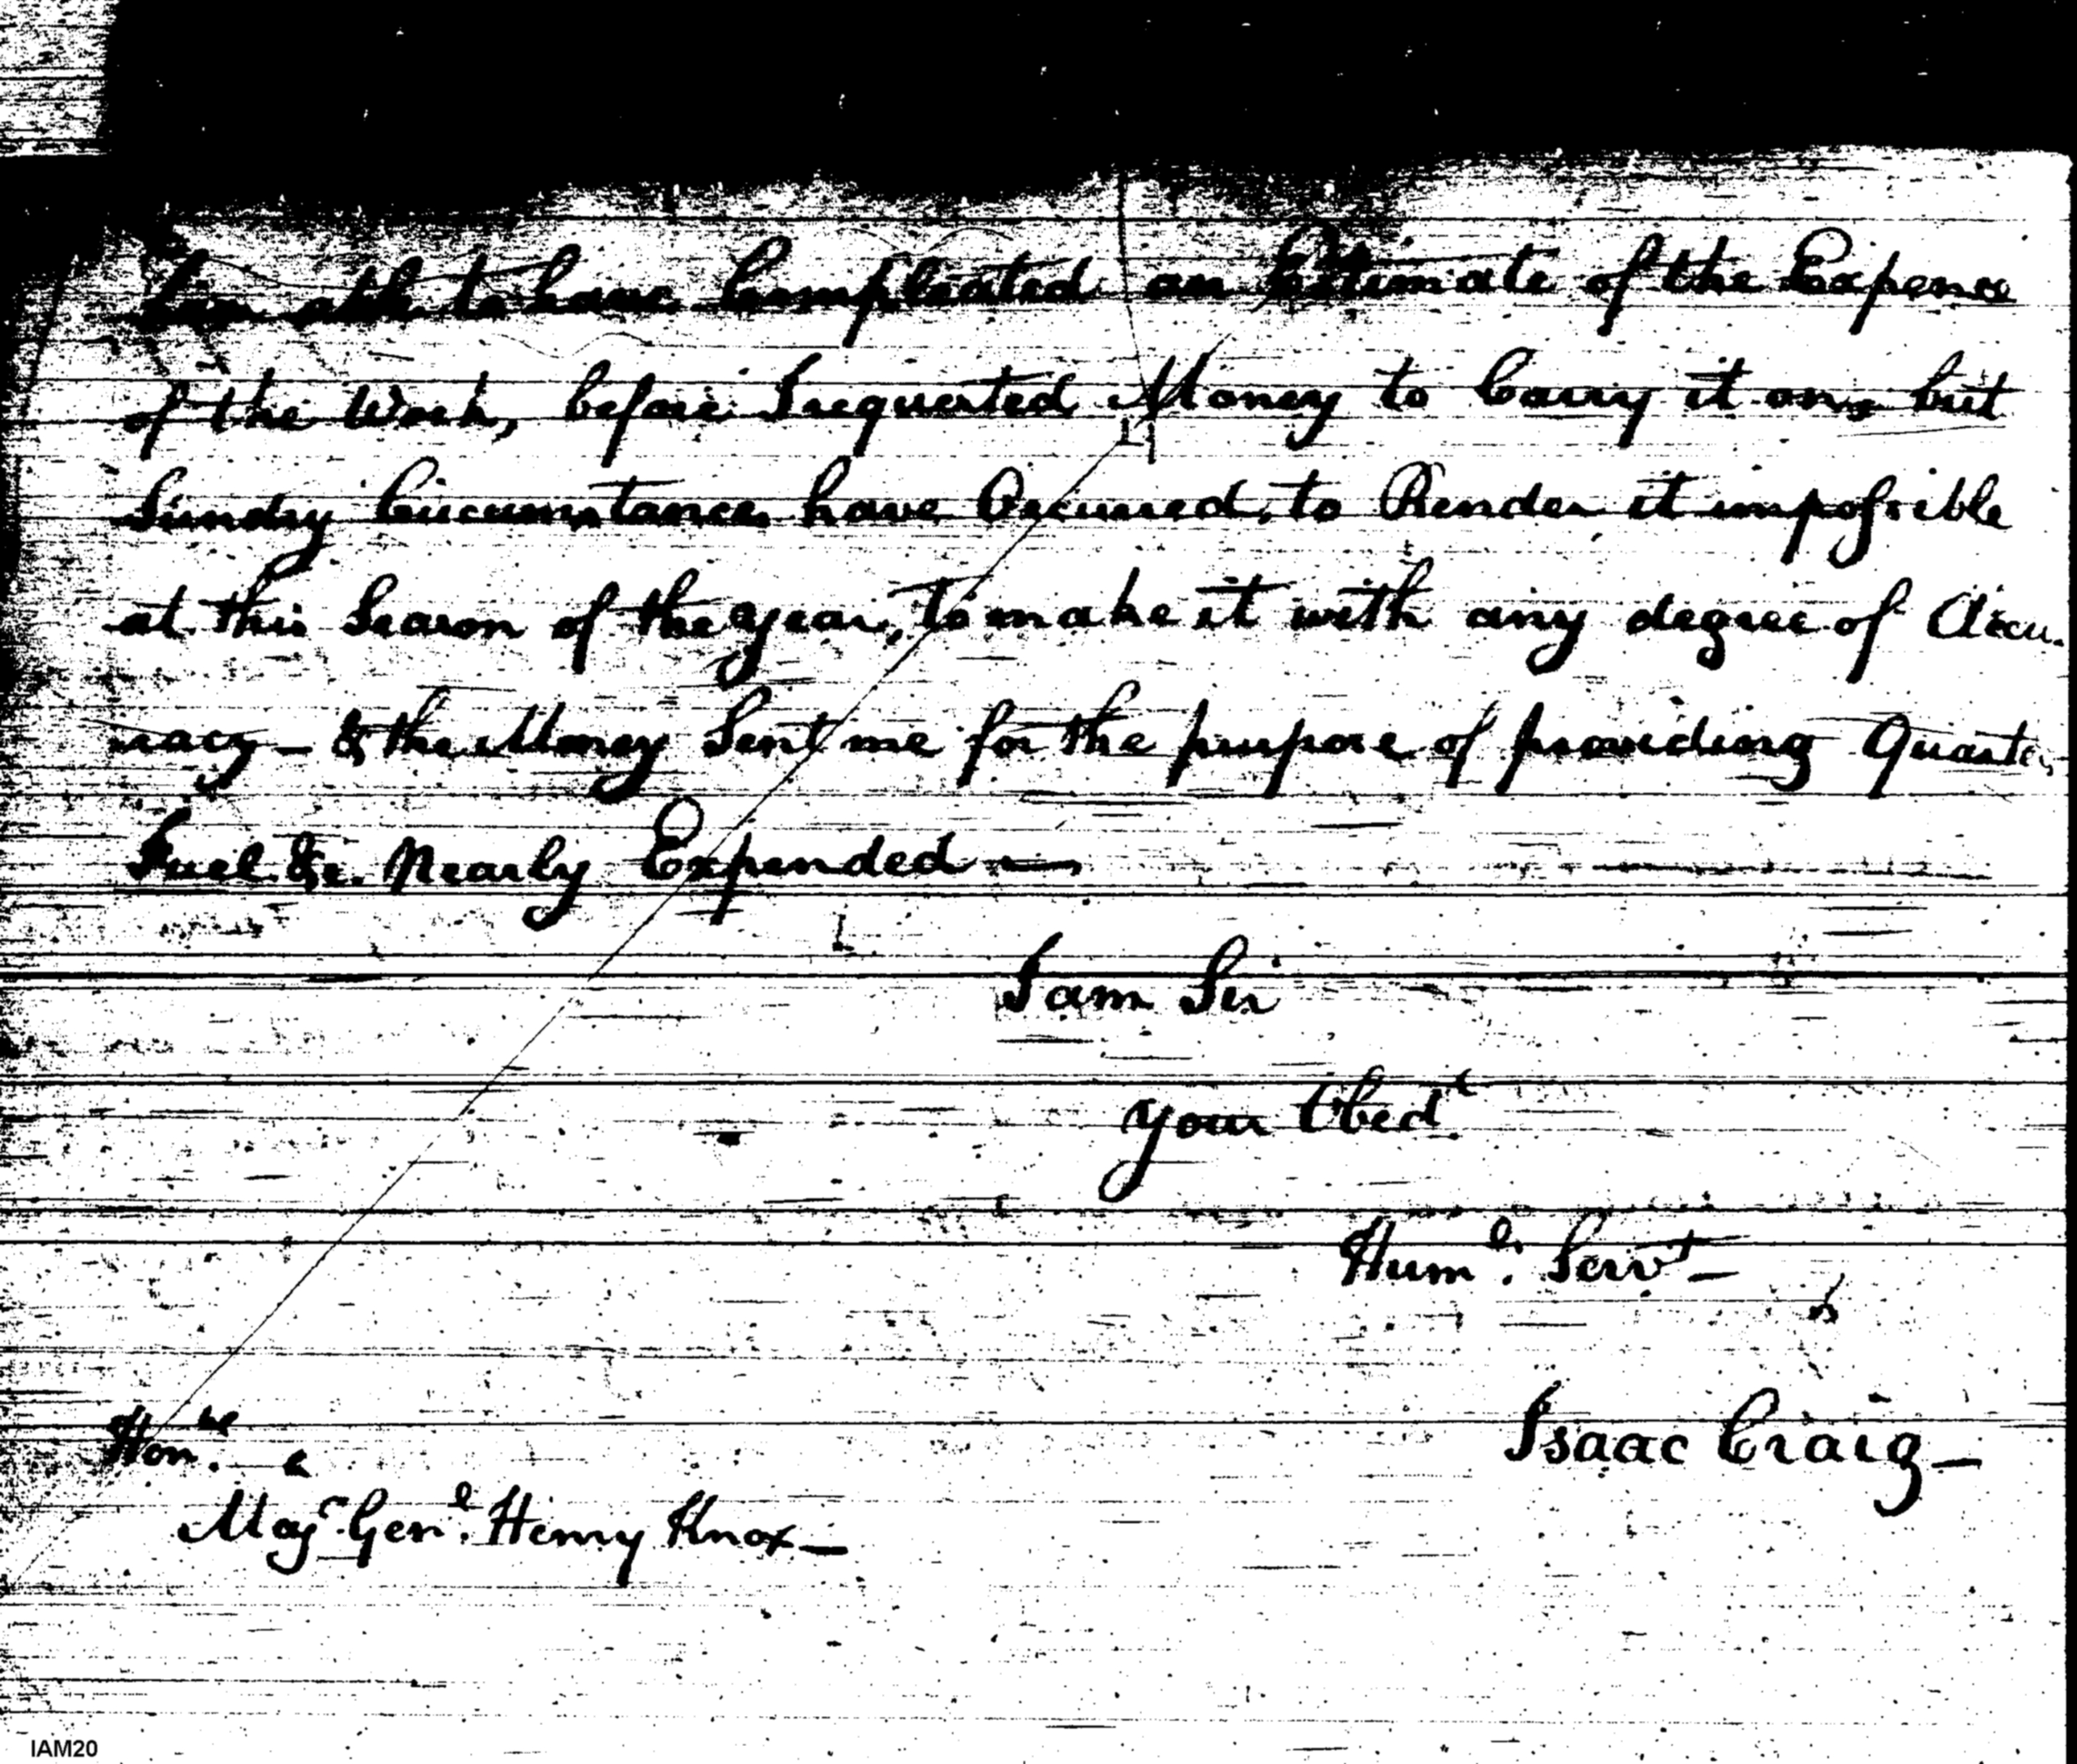 been able to have Compleated an Estimate of the Expence
of the Work, before I requested Money to Carry it on, but
Sundry Circumstances have Occurred, to Render it impossible
at this Season of the year, to make it with any degree of Accu-
racy - & the Money Sent me for the purpose of providing Quarters
Fuel &c. Nearly Expended —
I am Sir
your Obedt
Humle. Servt —
Isaac Craig —
Honble
Majr. Genl. Henry Knox —
IAM20